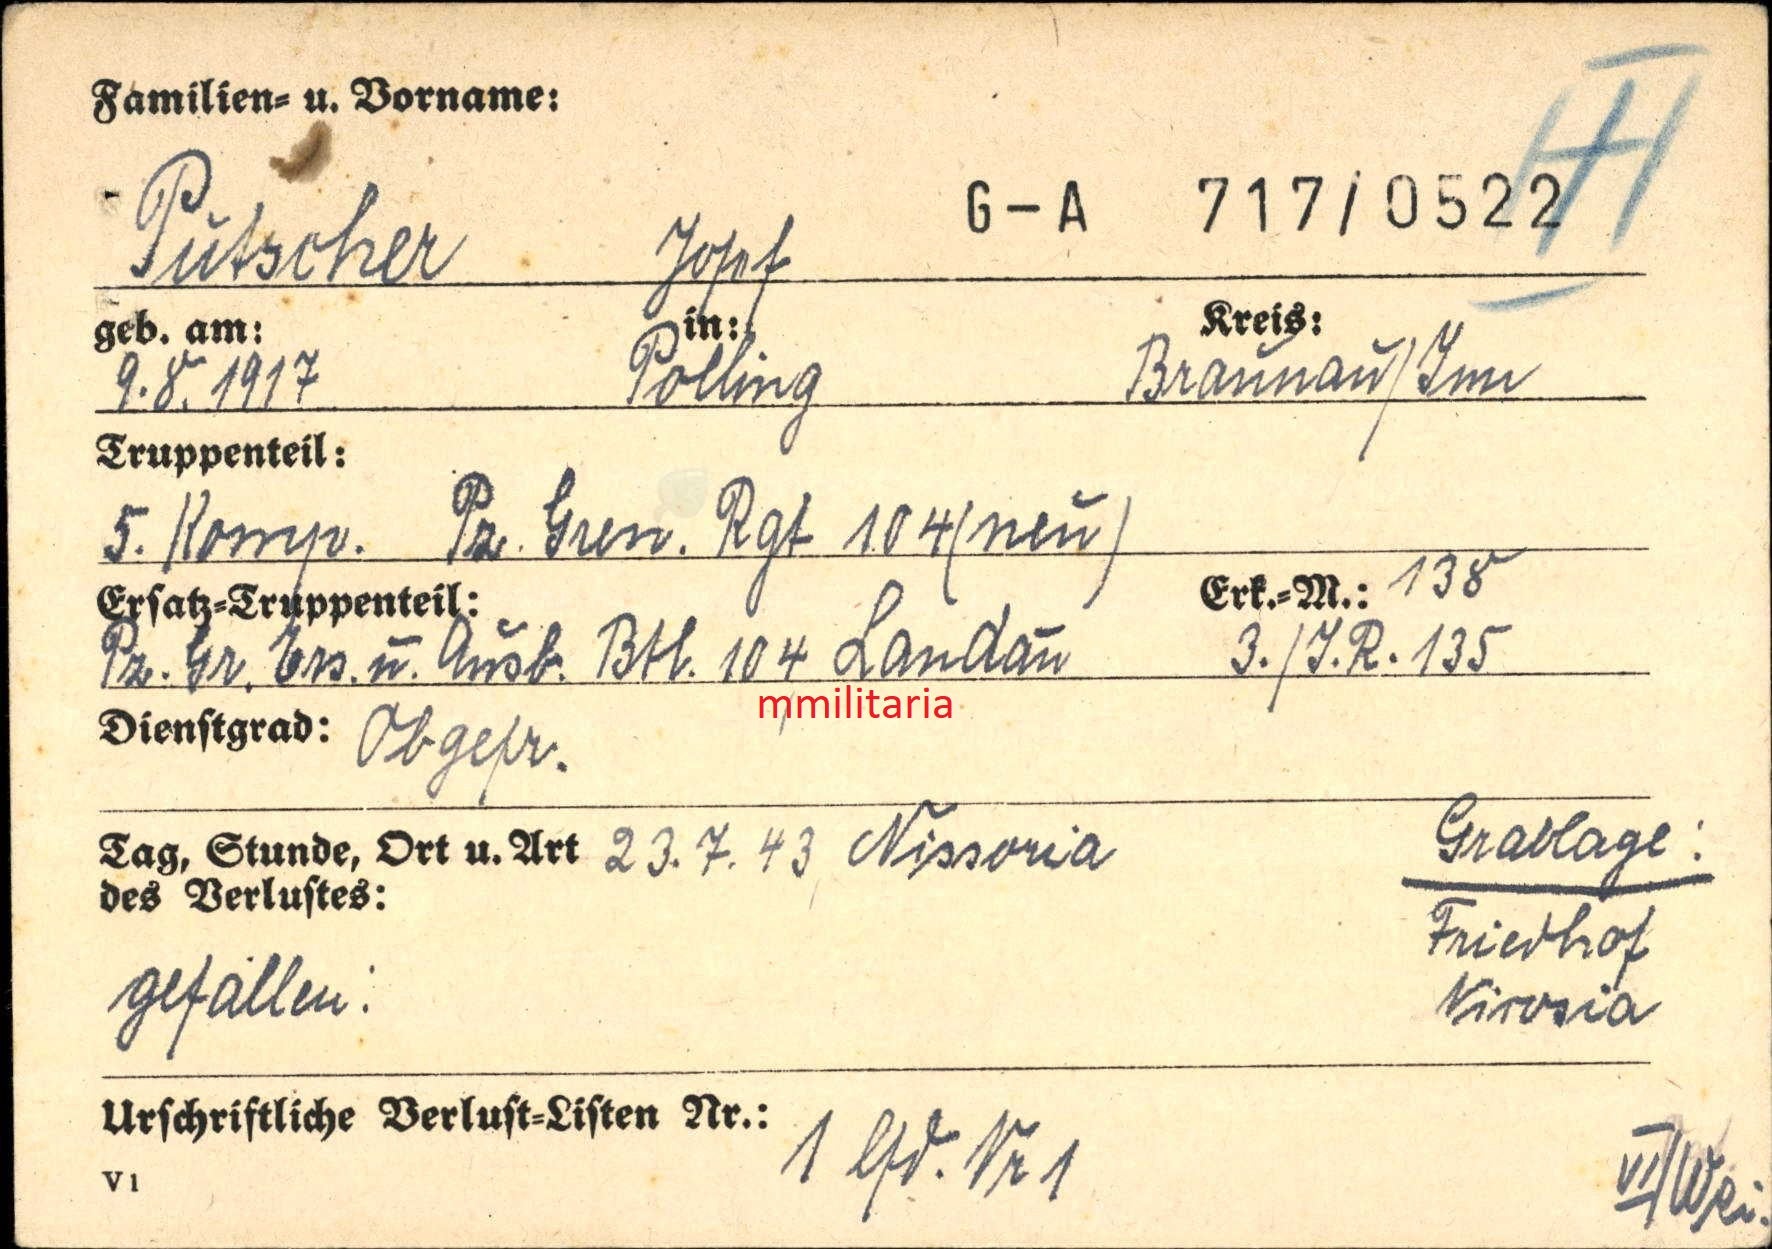 Familien- u. Vorname:
G-A 717/0522
Putscher Josef
geb. am: in: Kreis:
9.8.1917 Polling Braunau/Inn
Truppenteil:
5. Komp. Pz. Gren. Rgt 104 (neu)
Ersatz-Truppenteil: Erk.-M.: 138
Pz. Gr. Ers. u. Ausb. Btl. 104 Landau 3./J.R. 135
mmilitaria
Dienstgrad: Obgefr.
Tag, Stunde, Ort u. Art 23.7.43 Nissoria
des Verlustes:
Grablage:
Friedhof
gefallen:
Urschriftliche Verlust-Listen Nr.: 1 lfd. Nr 1
V 1